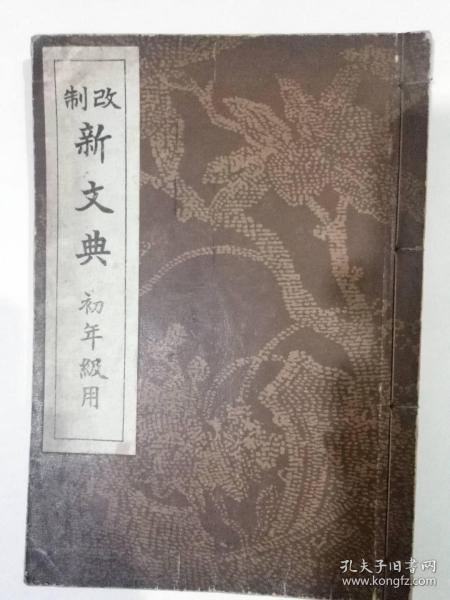 改制
新文典
初年級用
孔夫子旧书网
www.kongfz.com